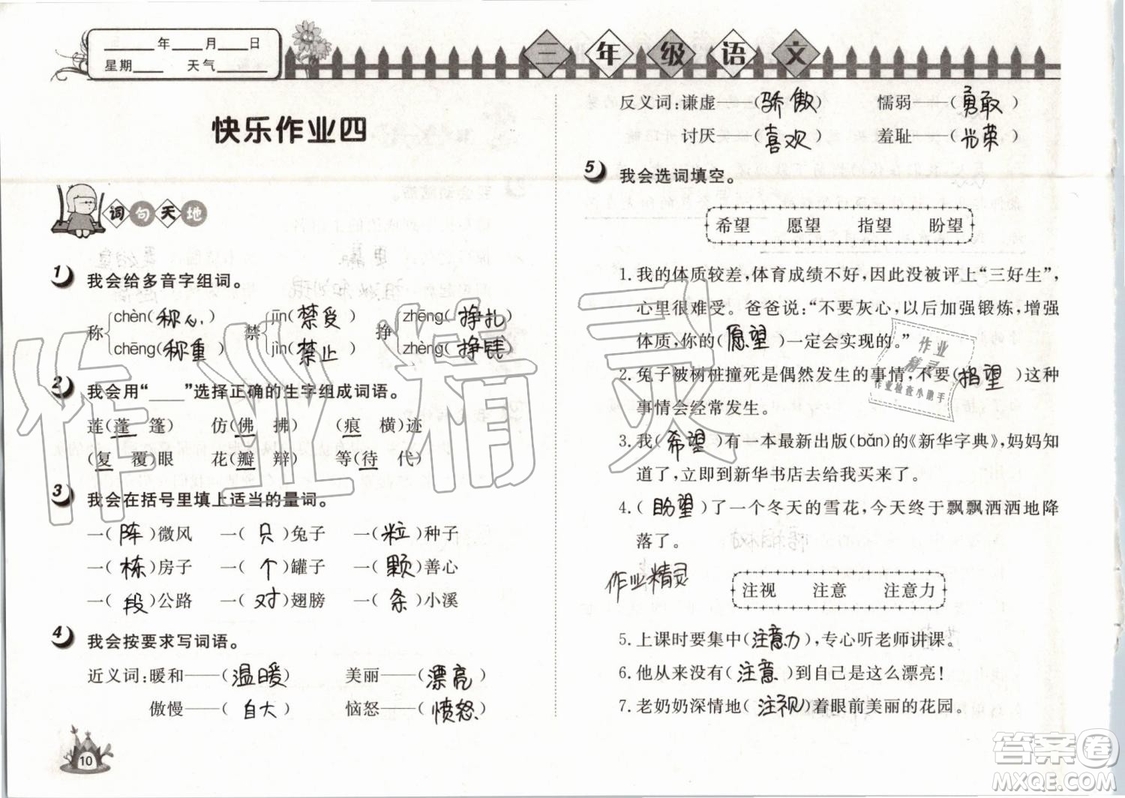 ______年____月____日
星期____ 天气____
三年级语文
快乐作业四
词句天地
1 我会给多音字组词。
称 chèn(称心) chēng(称重) 禁 jīn(禁受) jìn(禁止) 挣 zhēng(挣扎) zhèng(挣钱)
2 我会用“____”选择正确的生字组成词语。
连(蓬 篷) 仿(佛 拂) (痕 横)迹
(复 覆)眼 花(瓣 辩) 等(待 代)
3 我会在括号里填上适当的量词。
一(阵)微风 一(只)兔子 一(粒)种子
一(栋)房子 一(个)罐子 一(颗)善心
一(段)公路 一(对)翅膀 一(条)小溪
4 我会按要求写词语。
近义词:暖和——(温暖) 美丽——(漂亮)
傲慢——(自大) 恼怒——(愤怒)
10
反义词:谦虚——(骄傲) 懦弱——(勇敢)
讨厌——(喜欢) 羞耻——(光荣)
5 我会选词填空。
希望 愿望 指望 盼望
1. 我的体质较差,体育成绩不好,因此没被评上“三好生”,
心里很难受。爸爸说:“不要灰心,以后加强锻炼,增强
体质,你的(愿望)一定会实现的。”
2. 兔子被树桩撞死是偶然发生的事情,不要(指望)这种
事情会经常发生。
3. 我(希望)有一本最新出版(bǎn)的《新华字典》,妈妈知
道了,立即到新华书店去给我买来了。
4. (盼望)了一个冬天的雪花,今天终于飘飘洒洒地降
落了。
作业精灵
注视 注意 注意力
5. 上课时要集中(注意力),专心听老师讲课。
6. 他从来没有(注意)到自己是这么漂亮!
7. 老奶奶深情地(注视)着眼前美丽的花园。
作业精灵
作业
精灵
作业检查小助手
答案卷
MXQE.COM